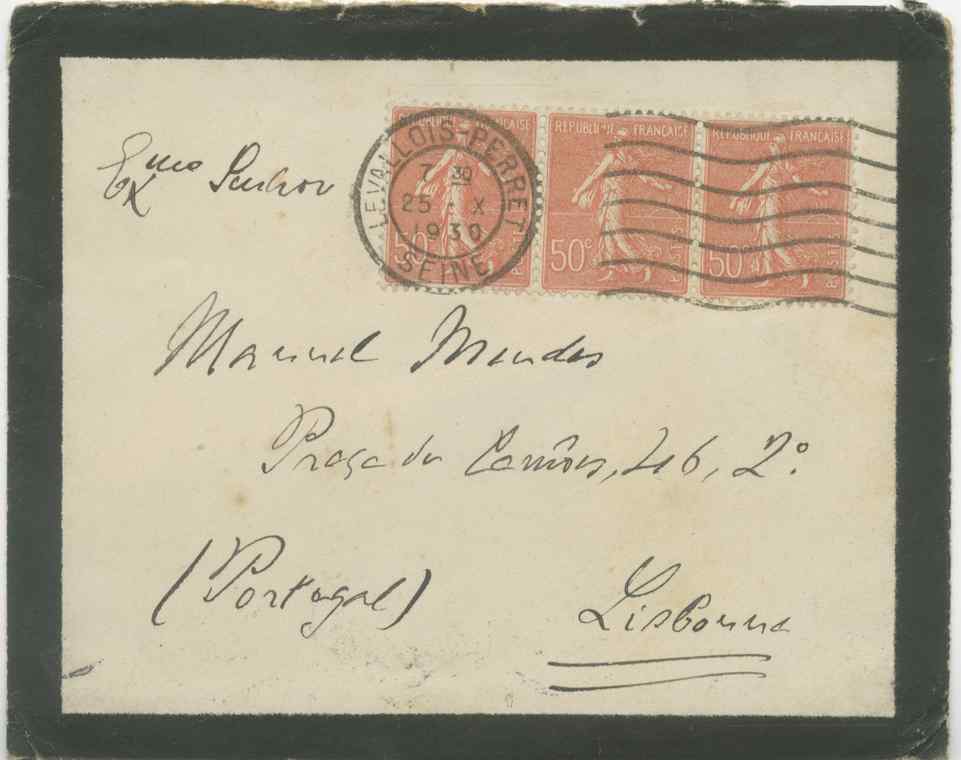 REPUBLIQUE FRANÇAISE REPUBLIQUE FRANÇAISE REPUBLIQUE FRANÇAISE
50c 50c 50c
POSTES
LEVALLOIS-PERRET
7 30
25 - X
1930
SEINE
Exmo Senhor
Manuel Mendes
Praça de Camões, 46, 2º
(Portugal) Lisbonne